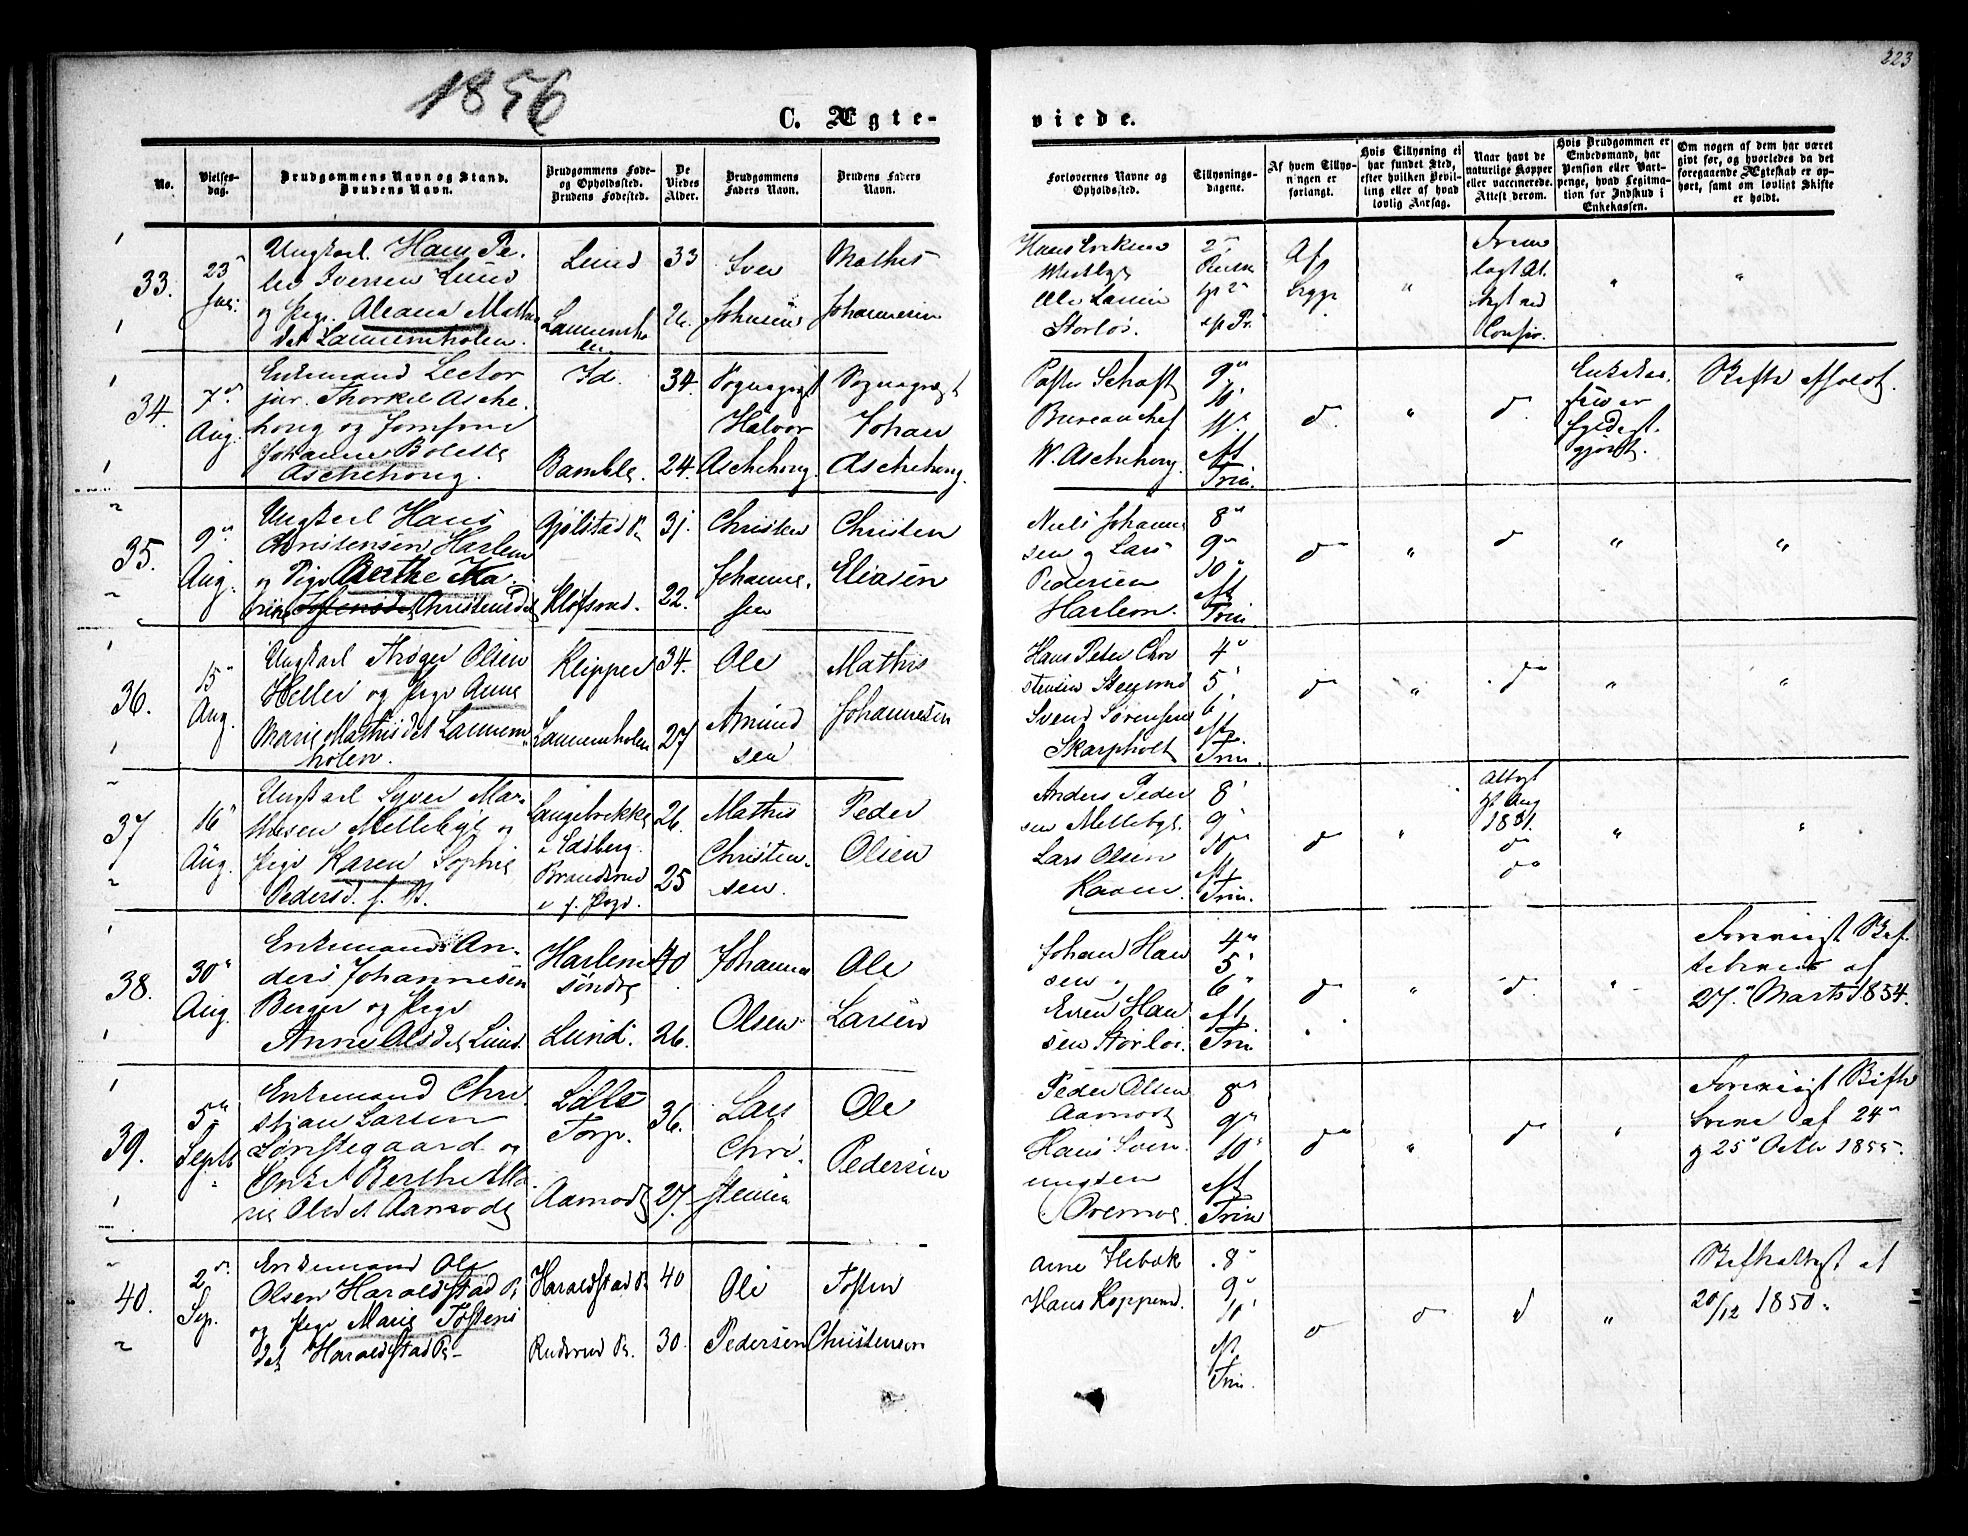 1856
223
C. Ægte-
viede.
No.
Vielses-
dag.
Brudgommens Navn og Stand.
Brudens Navn.
Brudgommens Føde-
og Opholdssted.
Brudens Fødested.
De
Viedes
Alder.
Brudgommens
Faders Navn.
Brudens Faders
Navn.
Forlovernes Navne og
Opholdssted.
Tillysnings-
dagene.
Af hvem Tillys-
ningen er
forlangt.
Hvis Tillysning ei
har fundet Sted,
efter hvilken Bevil-
ling eller af hvad
lovlig Aarsag.
Naar havt de
naturlige Kopper
eller vaccinerede.
Attest derom.
Hvis Brudgommen er
Embedsmand, har
Pension eller Vart-
penge, hvad Legitma-
tion for Indskud i
Enkekassen.
Om nogen af dem har været
gift før, og hvorledes da det
foregaaende Ægteskab er op-
hørt, samt om lovligt Skifte
er holdt.
33.
23
Juli
Ungkarl Hans Pe-
der Iversen Lund
og Pige Oleana Mathis
det Lannemholen.
Lund
Lannemho
len
33
26
Iver
Johnsen
Mathis
Johannesen
Hans Eriksen
Vestbye
Ole Larsen
Storløs.
Af
Begge
Frem
lagt At
test ved
Confir.
34.
7de
Aug.
Enkemand Lector
jur. Thorkel Asche-
houg og Jomfru
Johanne Bolette
Aschehoug.
Id.
Bamble.
34.
24.
Sognepræst
Halvor
Aschehoug.
Sognepræst
Johan
Aschehoug.
Pastor Schaft
Bureauchef
W. Aschehoug.
9de
10
11
eft.
Trin.
do
do
Enkekas.
gjort.
Skifte afholdt.
35.
9de
Aug.
Ungkarl Hans
Christensen Harlem
og Pige Berthe Ka-
trine Christensdet
Gjølstad Pr
Kløfsrud.
31.
22.
Christen
Johanne-
sen
Christen
Eliasen
Niels Johanne
sen og Lars
Pedersen
Harlem.
8de
9de
10
eft
Trin.
do
do
36.
15
Aug.
Ungkarl Thøger Olsen
Heller og Pige Anne
Marie Mathisdet Lannem
holen.
Klipper
Lannemholen
34.
27
Ole
Amund
sen
Mathis
Johannesen
Hans Peter Chri
stensen Steen
Svend Sørensen
Skarpholt
4
5
6
eft.
Trin.
do
do
37
16
Aug.
Ungkarl Syver Mat-
hisen Mellebye og
Pige Karen Sophie
Pedersd. f. B.
Langebrekke
i Edsberg.
Brandsrud
i f. Pægd.
26.
25
Mathis
Christen-
sen.
Peder
Olsen
Anders Peder
sen Mellebye.
Lars Olsen
8
9
10
eft
Trin.
do
Attest
Aug
1831.
do
do
38.
30
Aug.
Enkemand An-
ders Johannesen
Berger og Pige
Anne Olsdet Lund.
Harlem
søndre
Lund.
40
26.
Johannes
Olsen
Ole
Larsen
Johan Han
sen
Even Han
sen Storløs.
4
5
6
eft.
Trin.
do
do
Foreviist Skif
tebreve af
27. Marts 1854.
39.
5
Septb
Enkemand Chri
stian Larsen
og
Enke Berthe Ma-
rie Olsdet Aamodt
Lille
Torp.
Aamodt
36.
27.
Lars
Chri-
stensen
Ole
Pedersen
Peder Olsen
Aamodt
Hans Sven
ungsen
8de
9
10
eft
Trin
do
do
Foreviist Skifte
breve af 24
og 25 Octbr 1855.
40.
2
Sep.
Enkemand Ole
Olsen Haraldstad Pr
og Pige Marie Tostens
det Haraldstad Pr
Haraldstad Pr
Rudsrud Pr.
40
30.
Ole
Pedersen
Tosten
Christensen
Arne Flebæk
Hans Kopperud.
8
9
10
eft
Trin.
do
Skifteattest af
20/12 1850.